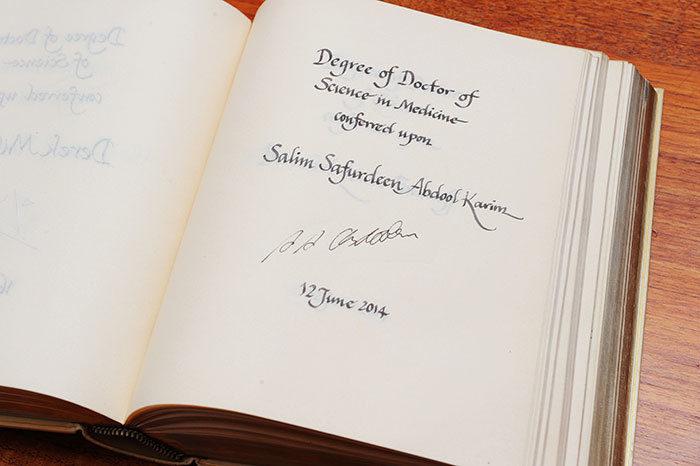 Degree of Doctor of
Science in Medicine
conferred upon
Salim Safurdeen Abdool Karim
12 June 2014